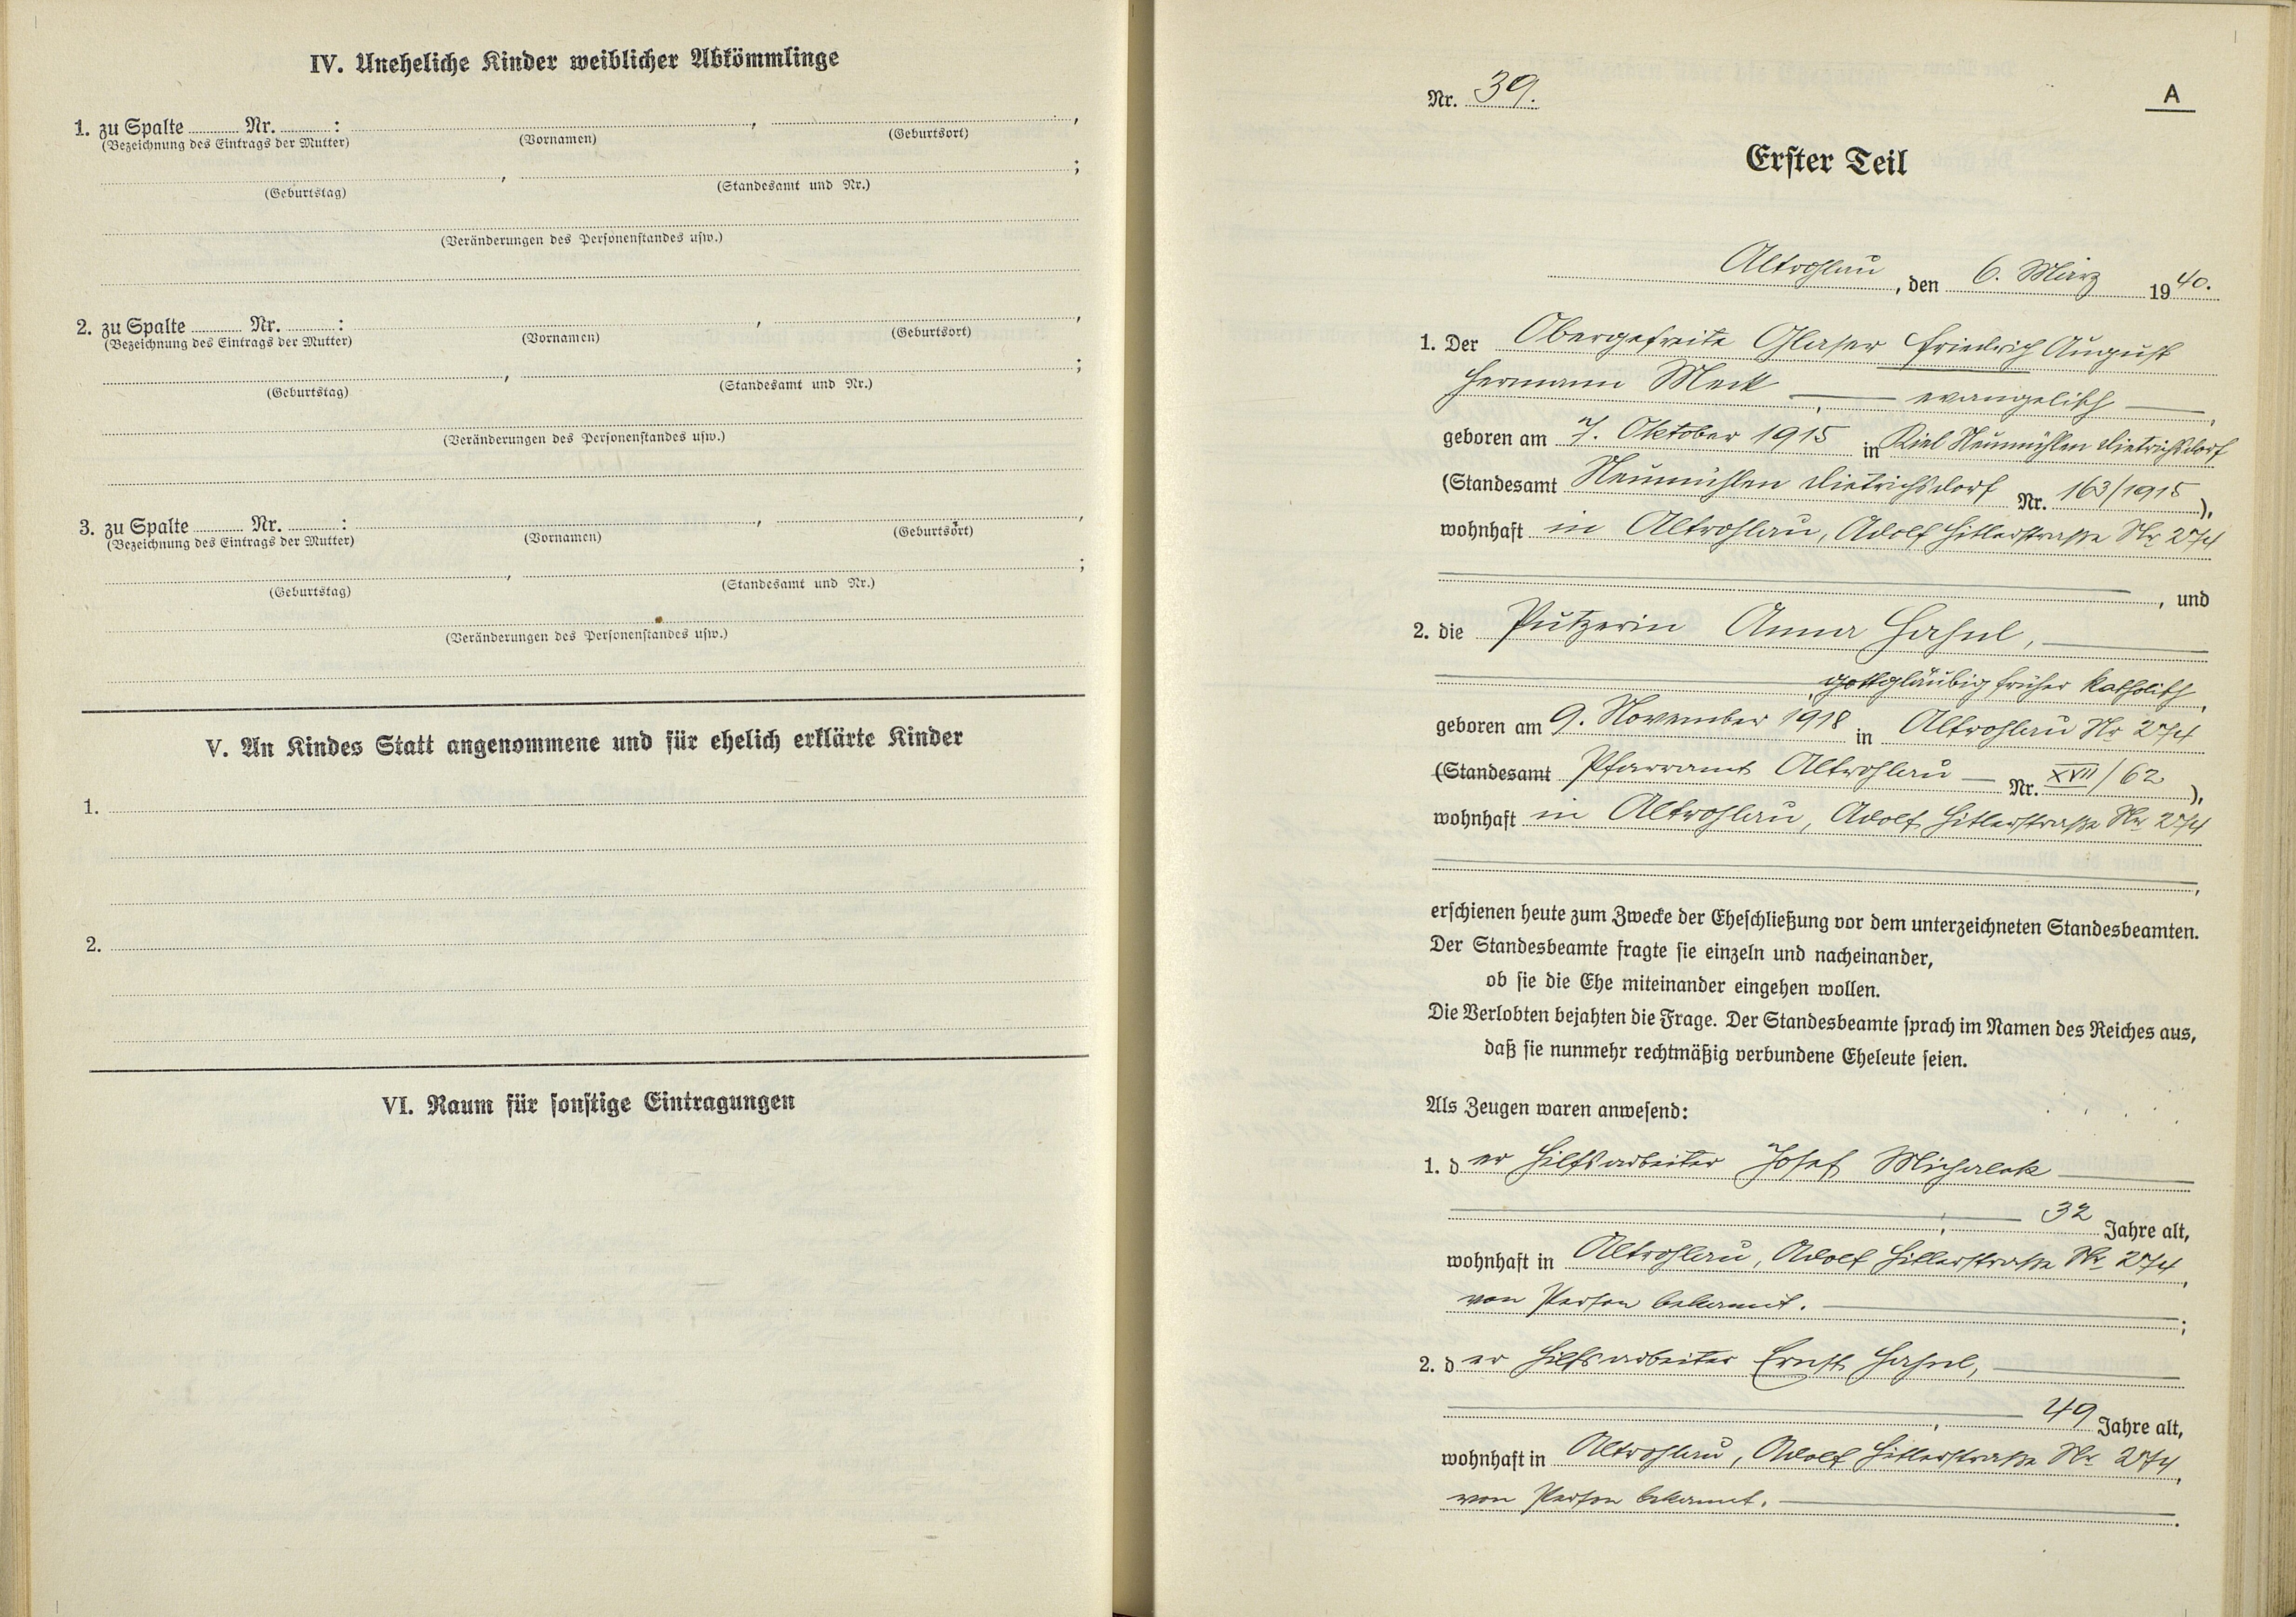 IV. Uneheliche Kinder weiblicher Abkömmlinge
1. zu Spalte Nr. : , ,
(Bezeichnung des Eintrags der Mutter) (Vornamen) (Geburtsort)
, ;
(Geburtstag) (Standesamt und Nr.)
(Veränderungen des Personenstandes usw.)
2. zu Spalte Nr. : , ,
(Bezeichnung des Eintrags der Mutter) (Vornamen) (Geburtsort)
, ;
(Geburtstag) (Standesamt und Nr.)
(Veränderungen des Personenstandes usw.)
3. zu Spalte Nr. : , ,
(Bezeichnung des Eintrags der Mutter) (Vornamen) (Geburtsort)
, ;
(Geburtstag) (Standesamt und Nr.)
(Veränderungen des Personenstandes usw.)
V. An Kindes Statt angenommene und für ehelich erklärte Kinder
1.
2.
VI. Raum für sonstige Eintragungen
Nr. 39.
A
Erster Teil
Altrohlau, den 6. März 1940.
1. Der Obergefreite Glaser Friedrich August
Hermann Meck, evangelisch,
geboren am 7. Oktober 1915 in Kiel Neumühlen Dietrichsdorf
(Standesamt Neumühlen Dietrichsdorf Nr. 163/1915),
wohnhaft in Altrohlau, Adolf Hitlerstraße Nr. 274
, und
2. die Putzerin Anna Hahnl,
, gottgläubig früher katholisch,
geboren am 9. November 1918 in Altrohlau Nr. 274
(Standesamt Pfarramt Altrohlau Nr. XVII/62),
wohnhaft in Altrohlau, Adolf Hitlerstraße Nr. 274
,
erschienen heute zum Zwecke der Eheschließung vor dem unterzeichneten Standesbeamten.
Der Standesbeamte fragte sie einzeln und nacheinander,
ob sie die Ehe miteinander eingehen wollen.
Die Verlobten bejahten die Frage. Der Standesbeamte sprach im Namen des Reiches aus,
daß sie nunmehr rechtmäßig verbundene Eheleute seien.
Als Zeugen waren anwesend:
1. der Hilfsarbeiter Josef Michalek
, 32 Jahre alt,
wohnhaft in Altrohlau, Adolf Hitlerstraße Nr. 274,
von Person bekannt. ;
2. der Hilfsarbeiter Ernst Hahnl,
, 49 Jahre alt,
wohnhaft in Altrohlau, Adolf Hitlerstraße Nr. 274,
von Person bekannt. .